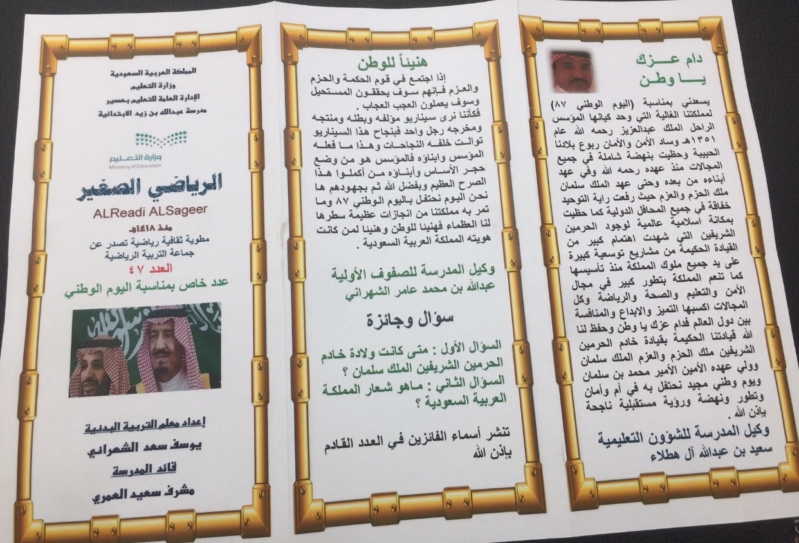 دام عــزك
يــا وطـن
يسعدني بمناسبة (اليوم الوطني ٨٧)
لمملكتنا الغالية التي وحد كيانها المؤسس
الراحل الملك عبدالعزيز رحمه الله عام
١٣٥١هـ وساد الأمن والأمان ربوع بلادنا
الحبيبة وحظيت بنهضة شاملة في جميع
المجالات منذ عهده رحمه الله وفي عهد
أبناءه من بعده وحتى عهد الملك سلمان
ملك الحزم والعزم حيث رفعت راية التوحيد
خفاقة في جميع المحافل الدولية كما حظيت
بمكانة اسلامية عالمية لوجود الحرمين
الشريفين التي شهدت اهتمام كبير من
القيادة الحكيمة من مشاريع توسعية كبيرة
على يد جميع ملوك المملكة منذ تأسيسها
كما تنعم المملكة بتطور كبير في مجال
الأمن والتعليم والصحة والرياضة وكل
المجالات اكسبها التميز والابداع والمنافسة
بين دول العالم فدام عزك يا وطن وحفظ لنا
الله قيادتنا الحكيمة بقيادة خادم الحرمين
الشريفين ملك الحزم والعزم الملك سلمان
وولي عهده الأمين الأمير محمد بن سلمان
ويوم وطني مجيد نحتفل به في أم وأمان
وتطور ونهضة ورؤية مستقبلية ناجحة
بإذن الله .
وكيل المدرسة للشؤون التعليمية
سعيد بن عبدالله آل هطلاء
هنيئاً للوطن
إذا اجتمع في قوم الحكمة والحزم
والعزم فإنهم سوف يحققون المستحيل
وسوف يعملون العجب العجاب .
فكأننا نرى سيناريو مؤلفه وبطله ومنتجه
ومخرجه رجل واحد فبنجاح هذا السيناريو
توالت خلفه النجاحات وهذا ما فعله
المؤسس وابناؤه فالمؤسس هو من وضع
حجر الأساس وأبناؤه من أكملوا هذا
الصرح العظيم وبفضل الله ثم بجهودهم ها
نحن اليوم نحتفل باليوم الوطني ٨٧ وما
تمر به مملكتنا من انجازات عظيمة سطرها
لنا العظماء فهنيئا للوطن وهنيئا لمن كانت
هويته المملكة العربية السعودية .
وكيل المدرسة للصفوف الأولية
عبدالله بن محمد عامر الشهراني
سؤال وجائزة
السؤال الأول : متى كانت ولادة خادم
الحرمين الشريفين الملك سلمان ؟
السؤال الثاني : ماهو شعار المملكة
العربية السعودية ؟
تنشر أسماء الفائزين في العدد القادم
بإذن الله
المملكة العربية السعودية
وزارة التعليم
الإدارة العامة للتعليم بعسير
مدرسة عبدالله بن زيد الابتدائية
وزارة التعليم
Ministry of Education
الرياضي الصغير
ALReadi ALSageer
منذ ١٤١٨هـ
مطوية ثقافية رياضية تصدر عن
جماعة التربية الرياضية
العدد ٤٧
عدد خاص بمناسبة اليوم الوطني
إعداد معلم التربية البدنية
يوسف سعد الشهراني
قائد المدرسة
مشرف سعيد العمري